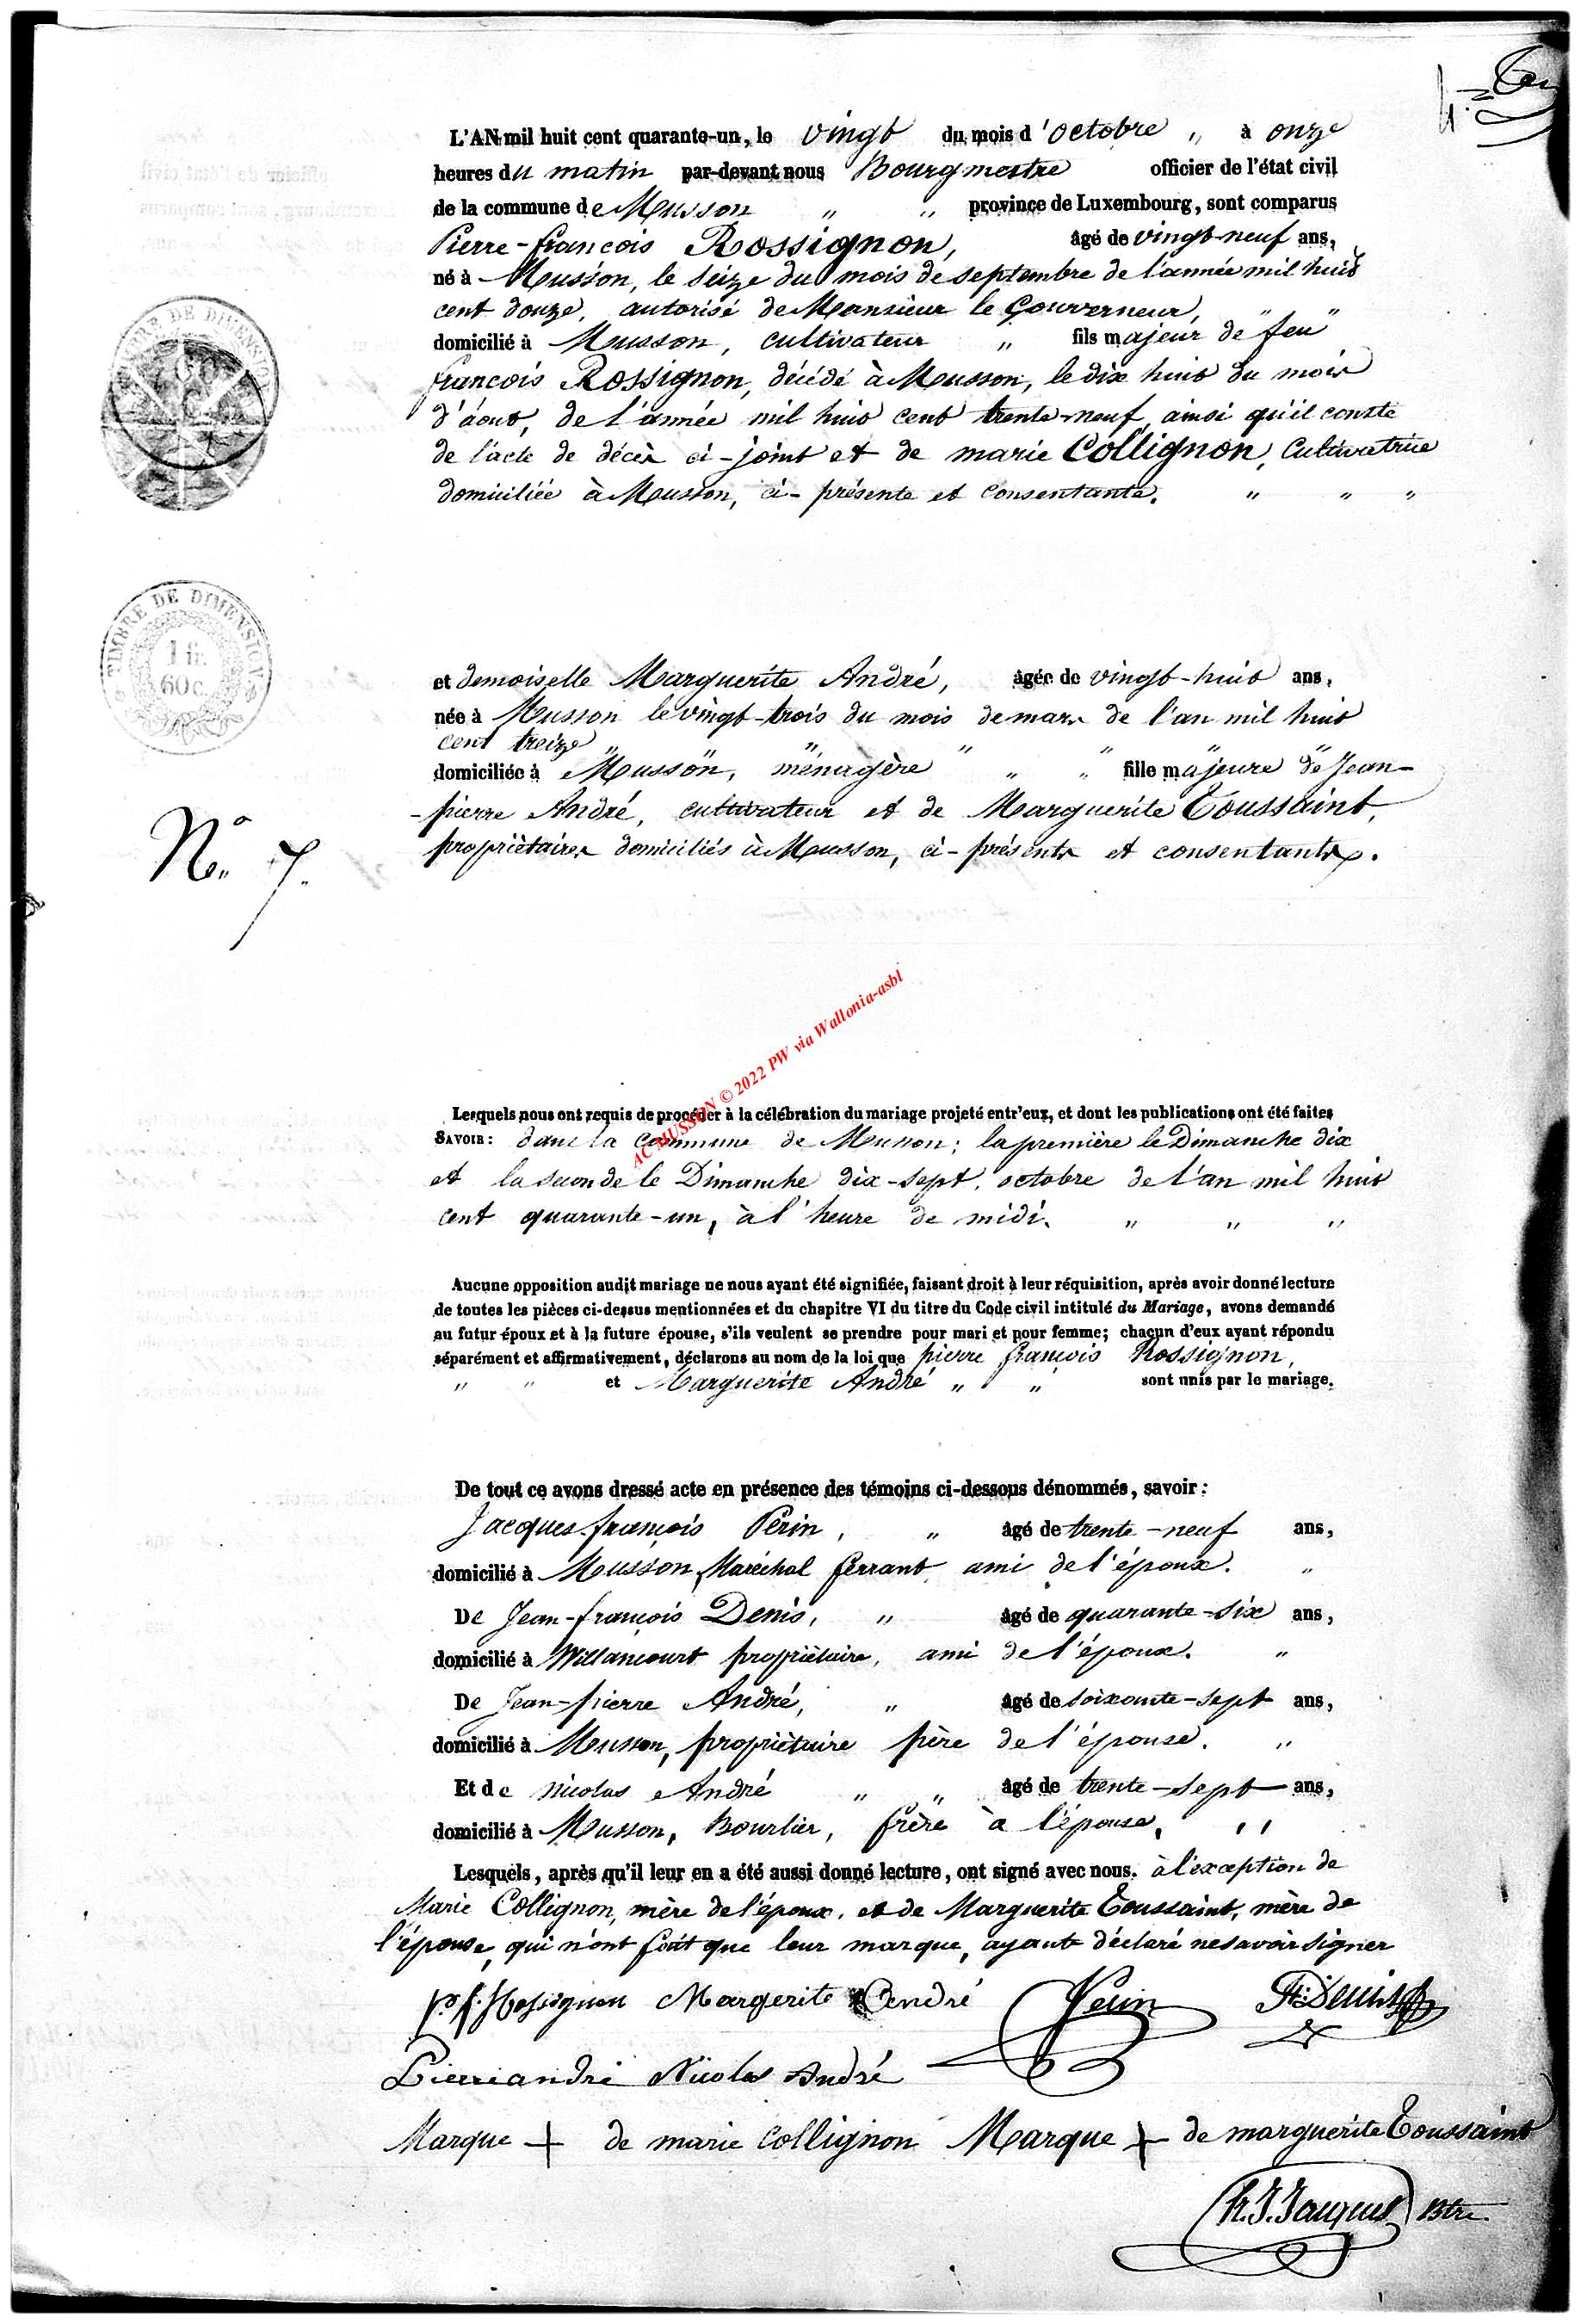 L'AN mil huit cent quarante-un, le vingt du mois d'octobre " à onze
heures du matin par-devant nous Bourgmestre officier de l'état civil
de la commune de Musson " " province de Luxembourg, sont comparus
Pierre-françois Rossignon, âgé de vingt-neuf ans,
né à Musson, le seize du mois de septembre de l'année mil huit
cent douze, autorisé de Monsieur le Gouverneur, " "
domicilié à Musson, cultivateur " fils majeur de feu
françois Rossignon, décédé à Musson, le dix huit du mois
d'áout, de l'année mil huit cent trente-neuf, ainsi qu'il conste
de l'acte de décès ci-joint et de marie Collignon, Cultivatrice
domiciliée à Musson, ci-présente et consentante. " " "
TIMBRE DE DIMENSION
TIMBRE DE DIMENSION
1 fr.
60 c.
et demoiselle Marguerite André, âgée de vingt-huit ans,
née à Musson le vingt-trois du mois de mars de l'an mil huit
cent treize " " " " " "
domiciliée à Musson, ménagère " " fille majeure de Jean-
-pierre André, cultivateur et de Marguerite Toussaint,
propriètaires domiciliés à Musson, ci-présents et consentants.
No. 7.
AC MUSSON © 2022 PW via Wallonia-asbl
Lesquels nous ont requis de procéder à la célébration du mariage projeté entr'eux, et dont les publications ont été faites
SAVOIR: dans la commune de Musson; la première le Dimanche dix
et la seconde le Dimanche dix-sept, octobre de l'an mil huit
cent quarante-un, à l'heure de midi. " " "
Aucune opposition audit mariage ne nous ayant été signifiée, faisant droit à leur réquisition, après avoir donné lecture
de toutes les pièces ci-dessus mentionnées et du chapitre VI du titre du Code civil intitulé du Mariage, avons demandé
au futur époux et à la future épouse, s'ils veulent se prendre pour mari et pour femme; chacun d'eux ayant répondu
séparément et affirmativement, déclarons au nom de la loi que pierre françois Rossignon,
" " et Marguerite André " " sont unis par le mariage.
De tout ce avons dressé acte en présence des témoins ci-dessous dénommés, savoir:
Jacques françois Périn, " âgé de trente-neuf ans,
domicilié à Musson, Maréchal ferrant, ami de l'époux. "
De Jean-françois Denis, " âgé de quarante-six ans,
domicilié à Willancourt propriètaire, ami de l'époux. "
De Jean-pierre André, " âgé de soixante-sept ans,
domicilié à Musson, propriètaire père de l'épouse. "
Et de nicolas André " " âgé de trente-sept ans,
domicilié à Musson, Bourlier, frère à l'épouse, " "
Lesquels, après qu'il leur en a été aussi donné lecture, ont signé avec nous. à l'exception de
Marie Collignon, mère de l'époux. et de Marguerite Toussaint, mère de
l'épouse, qui n'ont fait que leur marque, ayant déclaré ne savoir signer
p. f. Rossignon Margerite André Perin Denis
Pierre andré Nicolas André
Marque + de marie Collignon Marque + de marguerite Toussaint
Btre